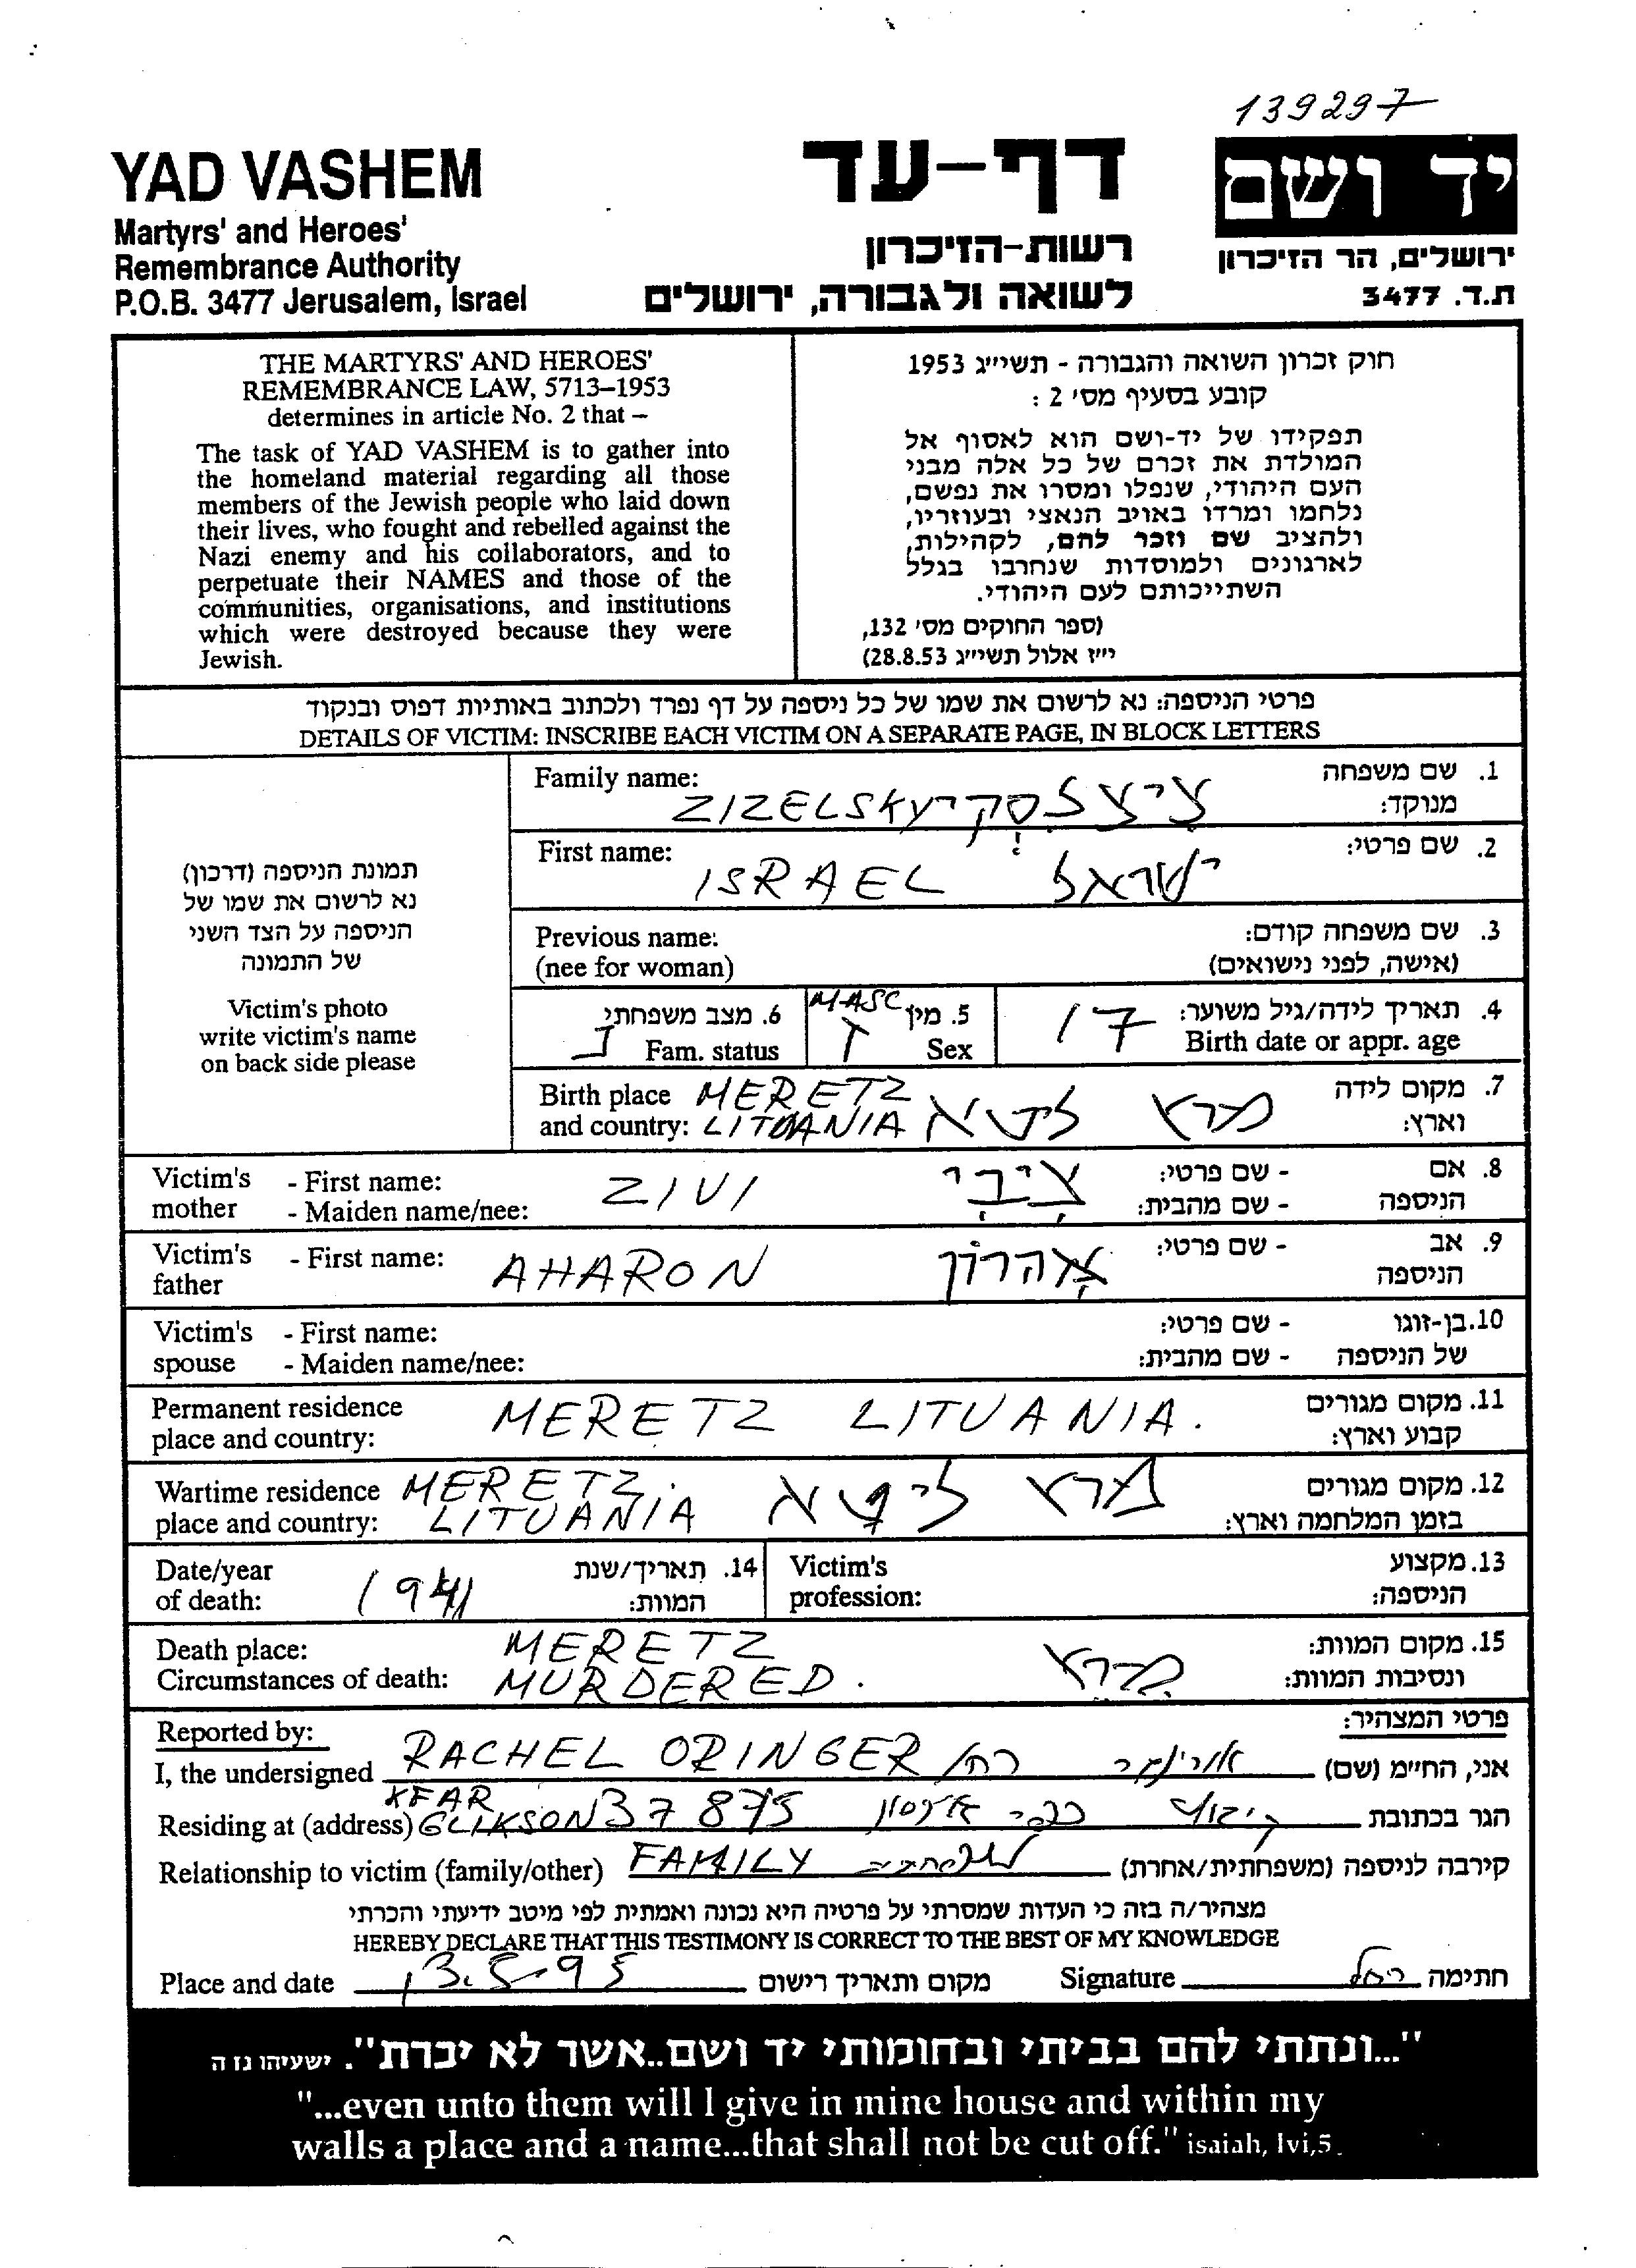 139297
YAD VASHEM
Martyrs' and Heroes'
Remembrance Authority
P.O.B. 3477 Jerusalem, Israel
דף-עד
רשות-הזיכרון
לשואה ולגבורה, ירושלים
יד ושם
ירושלים, הר הזיכרון
ת.ד. 3477
THE MARTYRS' AND HEROES'
REMEMBRANCE LAW, 5713–1953
determines in article No. 2 that –
The task of YAD VASHEM is to gather into
the homeland material regarding all those
members of the Jewish people who laid down
their lives, who fought and rebelled against the
Nazi enemy and his collaborators, and to
perpetuate their NAMES and those of the
communities, organisations, and institutions
which were destroyed because they were
Jewish.
חוק זכרון השואה והגבורה - תשי״ג 1953
קובע בסעיף מס׳ 2 :
תפקידו של יד-ושם הוא לאסוף אל
המולדת את זכרם של כל אלה מבני
העם היהודי, שנפלו ומסרו את נפשם,
נלחמו ומרדו באויב הנאצי ובעוזריו,
ולהציב שם וזכר להם, לקהילות,
לארגונים ולמוסדות שנחרבו בגלל
השתייכותם לעם היהודי.
(ספר החוקים מס׳ 132,
י״ז אלול תשי״ג 28.8.53)
פרטי הניספה: נא לרשום את שמו של כל ניספה על דף נפרד ולכתוב באותיות דפוס ובנקוד
DETAILS OF VICTIM: INSCRIBE EACH VICTIM ON A SEPARATE PAGE, IN BLOCK LETTERS
תמונת הניספה (דרכון)
נא לרשום את שמו של
הניספה על הצד השני
של התמונה
Victim's photo
write victim's name
on back side please
Family name: ZIZELSKY ציצלסקי 1. שם משפחה מנוקד:
First name: ISRAEL ישראל 2. שם פרטי:
Previous name: 3. שם משפחה קודם:
(nee for woman) (אישה, לפני נישואים)
6. מצב משפחתי Fam. status
MASC 5. מין ז Sex
17 4. תאריך לידה/גיל משוער:
Birth date or appr. age
Birth place MERETZ מרץ ליטא 7. מקום לידה
and country: LITUANIA וארץ:
Victim's - First name: ZIVI צִיבִי - שם פרטי: 8. אם
mother - Maiden name/nee: - שם מהבית: הניספה
Victim's - First name: AHARON אהרון - שם פרטי: 9. אב
father הניספה
Victim's - First name: - שם פרטי: 10. בן-זוגו
spouse - Maiden name/nee: - שם מהבית: של הניספה
Permanent residence MERETZ LITUANIA. 11. מקום מגורים
place and country: קבוע וארץ:
Wartime residence MERETZ. מרץ ליטא 12. מקום מגורים
place and country: LITUANIA בזמן המלחמה וארץ:
Date/year 1941 14. תאריך/שנת
of death: המוות:
Victim's 13. מקצוע
profession: הניספה:
Death place: MERETZ מרץ 15. מקום המוות:
Circumstances of death: MURDERED. ונסיבות המוות:
Reported by: פרטי המצהיר:
I, the undersigned RACHEL ORINGER רחל אורינגר אני, החי״מ (שם)
Residing at (address) KFAR GLIKSON 37875 קיבוץ כפר גליקסון הגר בכתובת
Relationship to victim (family/other) FAMILY משפחתית קירבה לניספה (משפחתית/אחרת)
מצהיר/ה בזה כי העדות שמסרתי על פרטיה היא נכונה ואמתית לפי מיטב ידיעתי והכרתי
HEREBY DECLARE THAT THIS TESTIMONY IS CORRECT TO THE BEST OF MY KNOWLEDGE
Place and date 13.5.95 מקום ותאריך רישום Signature רחל חתימה
"...ונתתי להם בביתי ובחומותי יד ושם..אשר לא יכרת". ישעיהו נז ה
"...even unto them will I give in mine house and within my
walls a place and a name...that shall not be cut off." isaiah, lvi,5.